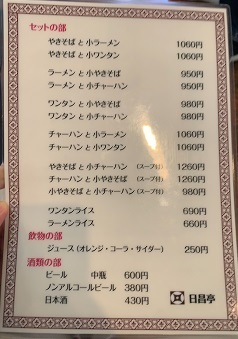 セットの部
やきそば と 小ラーメン 1060円
やきそば と 小ワンタン 1060円
ラーメン と 小やきそば 950円
ラーメン と 小チャーハン 950円
ワンタン と 小やきそば 980円
ワンタン と 小チャーハン 980円
チャーハン と 小ラーメン 1060円
チャーハン と 小ワンタン 1060円
やきそば と 小チャーハン (スープ付) 1260円
チャーハン と 小やきそば (スープ付) 1260円
小やきそば と 小チャーハン (スープ付) 980円
ワンタンライス 690円
ラーメンライス 660円
飲物の部
ジュース (オレンジ・コーラ・サイダー) 250円
酒類の部
ビール 中瓶 600円
ノンアルコールビール 380円
日本酒 430円
日昌亭